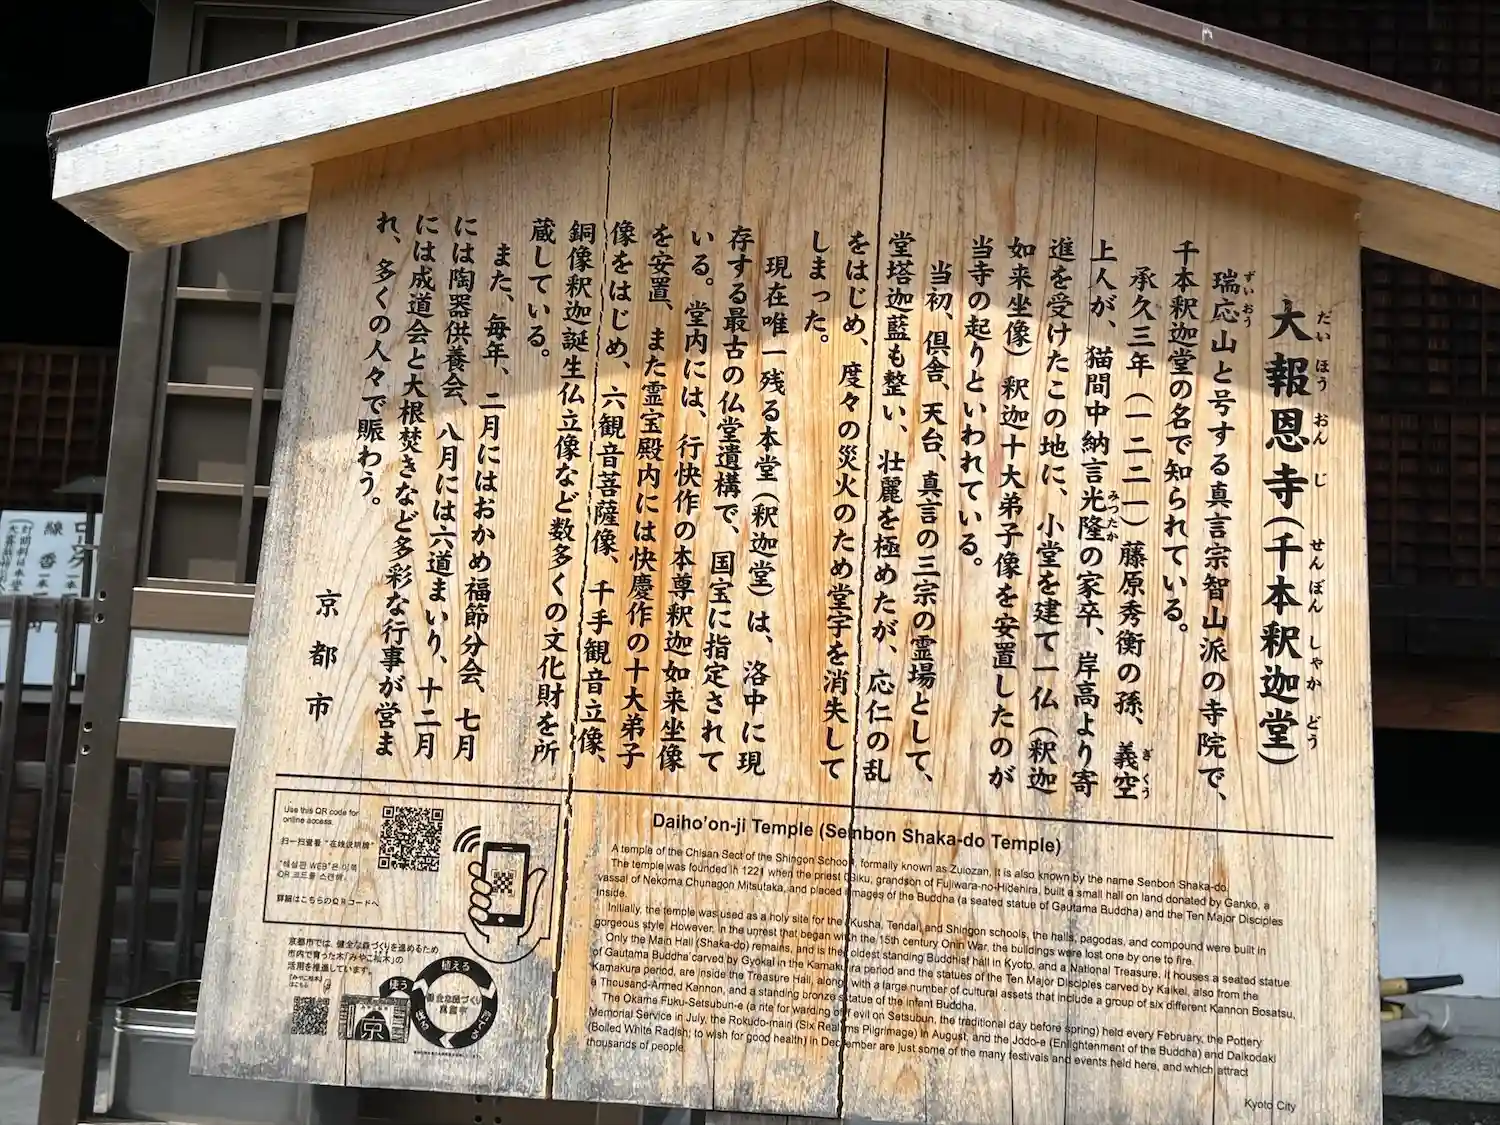 大報恩寺(千本釈迦堂)
だい ほう おん じ せんぼん しゃか どう
瑞応山と号する真言宗智山派の寺院で、
ずいおう
千本釈迦堂の名で知られている。
承久三年(一二二一)藤原秀衡の孫、義空
ぎくう
上人が、猫間中納言光隆の家卒、岸高より寄
みつたか
進を受けたこの地に、小堂を建て一仏(釈迦
如来坐像)釈迦十大弟子像を安置したのが
当寺の起りといわれている。
当初、倶舎、天台、真言の三宗の霊場として、
堂塔伽藍も整い、壮麗を極めたが、応仁の乱
をはじめ、度々の災火のため堂宇を消失して
しまった。
現在唯一残る本堂(釈迦堂)は、洛中に現
存する最古の仏堂遺構で、国宝に指定されて
いる。堂内には、行快作の本尊釈迦如来坐像
を安置、また霊宝殿内には快慶作の十大弟子
像をはじめ、六観音菩薩像、千手観音立像、
銅像釈迦誕生仏立像など数多くの文化財を所
蔵している。
また、毎年、二月にはおかめ福節分会、七月
には陶器供養会、八月には六道まいり、十二月
には成道会と大根焚きなど多彩な行事が営ま
れ、多くの人々で賑わう。
京都市
Use this QR code for
online access.
扫一扫查看"在线说明牌"
"해설판 WEB"은 이쪽
QR 코드를 스캔해.
詳細はこちらのQRコードへ
京都市では、健全な森づくりを進めるため
市内で育った木「みやこ杣木」の
活用を推進しています。
「みやこ杣木」
はこちら
植える
京
Daiho'on-ji Temple (Senbon Shaka-do Temple)
A temple of the Chisan Sect of the Shingon School, formally known as Zuiozan, it is also known by the name Senbon Shaka-do.
The temple was founded in 1221 when the priest Giku, grandson of Fujiwara-no-Hidehira, built a small hall on land donated by Ganko, a
vassal of Nekoma Chunagon Mitsutaka, and placed images of the Buddha (a seated statue of Gautama Buddha) and the Ten Major Disciples
inside.
Initially, the temple was used as a holy site for the Kusha, Tendai, and Shingon schools, the halls, pagodas, and compound were built in
gorgeous style. However, in the unrest that began with the 15th century Onin War, the buildings were lost one by one to fire.
Only the Main Hall (Shaka-do) remains, and is the oldest standing Buddhist hall in Kyoto, and a National Treasure. It houses a seated statue
of Gautama Buddha carved by Gyokai in the Kamakura period and the statues of the Ten Major Disciples carved by Kaikei, also from the
Kamakura period, are inside the Treasure Hall, along with a large number of cultural assets that include a group of six different Kannon Bosatsu,
a Thousand-Armed Kannon, and a standing bronze statue of the infant Buddha.
The Okame Fuku-Setsubun-e (a rite for warding off evil on Setsubun, the traditional day before spring) held every February, the Pottery
Memorial Service in July, the Rokudo-mairi (Six Realms Pilgrimage) in August, and the Jodo-e (Enlightenment of the Buddha) and Daikodaki
(Boiled White Radish; to wish for good health) in December are just some of the many festivals and events held here, and which attract
thousands of people.
Kyoto City
線香